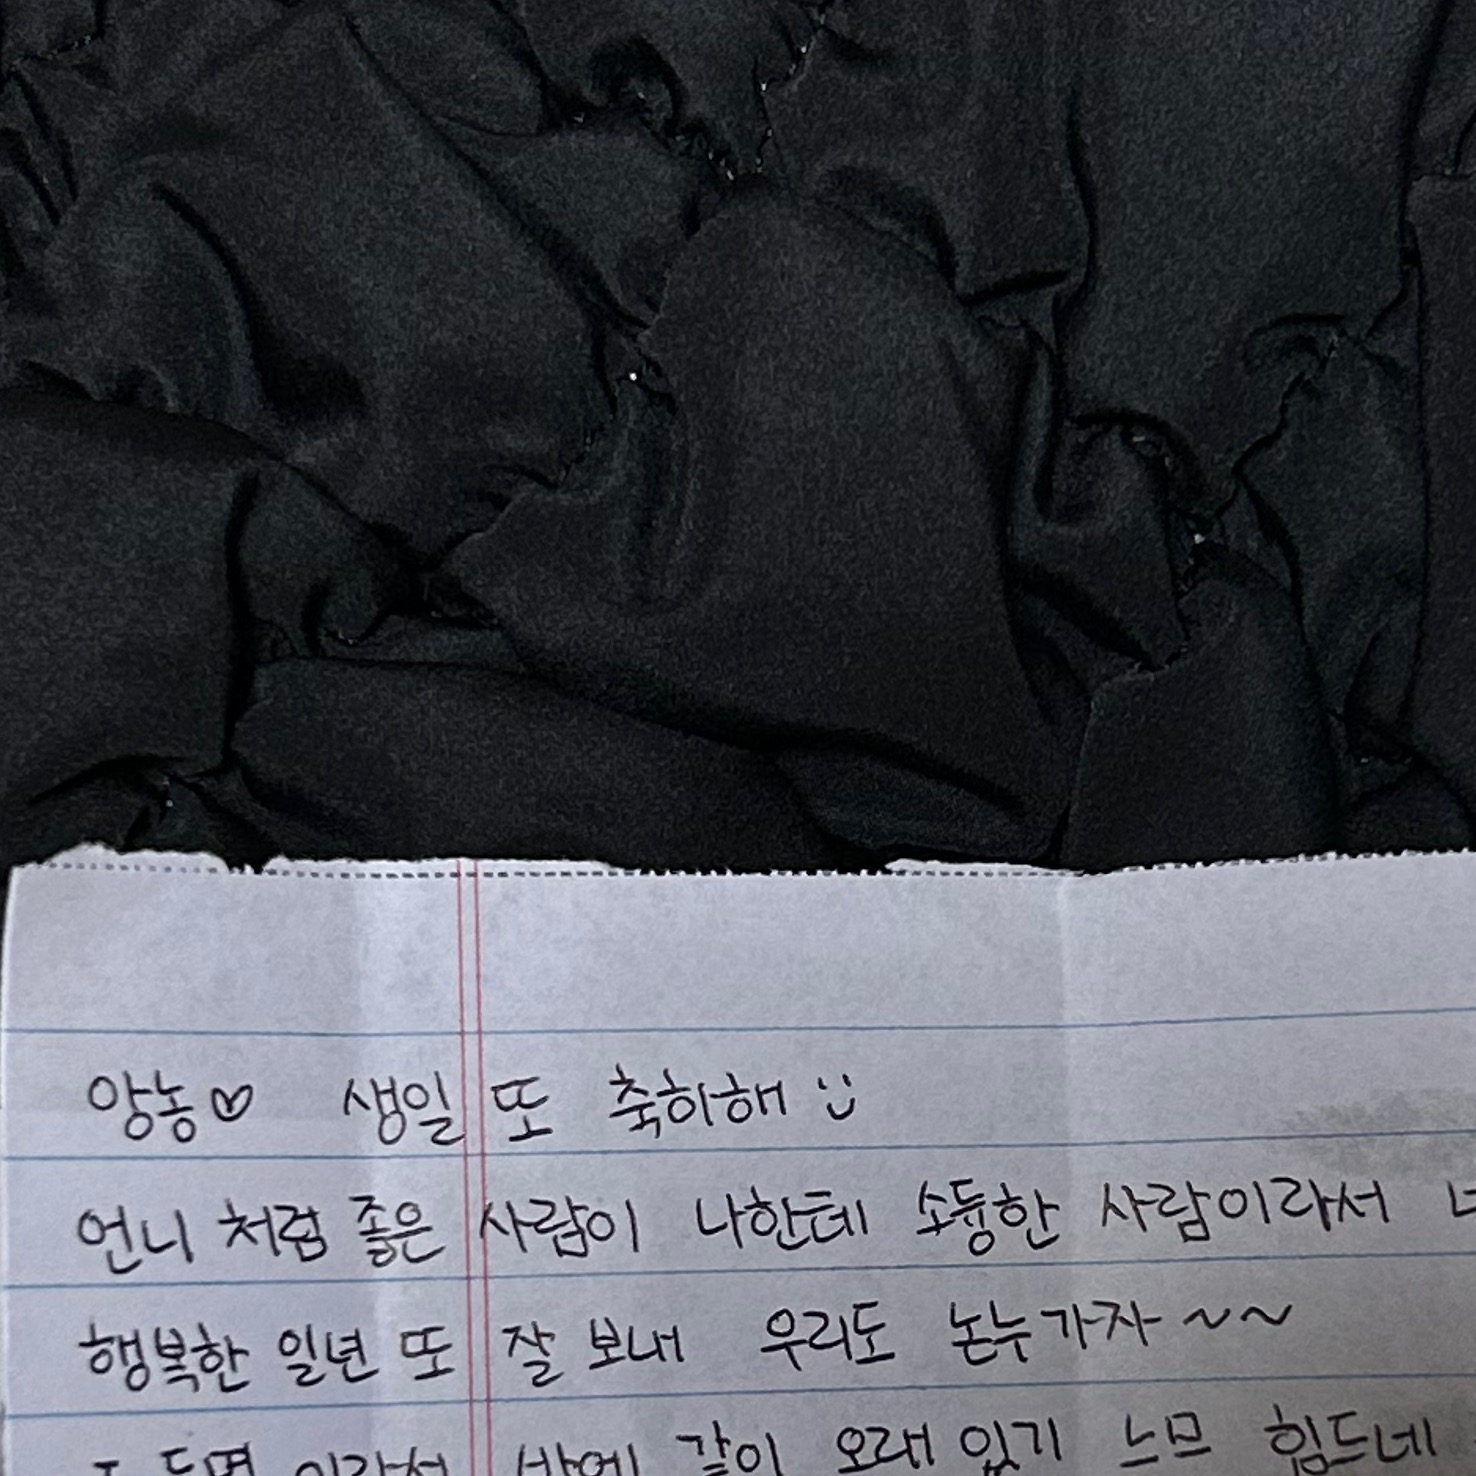 앙농♡ 생일 또 축하해 :)
언니 처럼 좋은 사람이 나한테 소듕한 사람이라서
행복한 일년 또 잘 보내 우리도 논누가자~~
밖에 같이 오래 있기 느므 힘드네